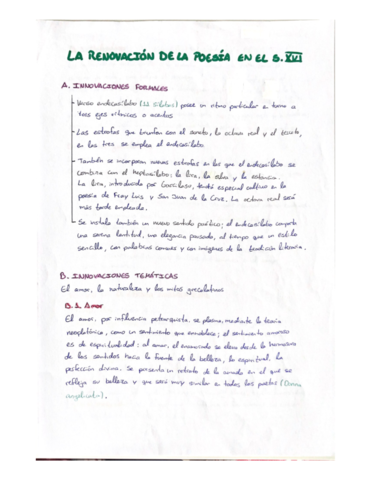 LA RENOVACIÓN DE LA POESÍA EN EL S. XVI
A. INNOVACIONES FORMALES
- Verso endecasílabo (11 sílabas) posee un ritmo particular en torno a
tres ejes rítmicos o acentos
- Las estrofas que triunfan son el soneto, la octava real y el terceto,
en los tres se emplea el endecasílabo
- También se incorporan nuevas estrofas en las que el endecasílabo se
combina con el heptasílabo: la lira, la silva y la estancia.
La lira, introducida por Garcilaso, tendrá especial cultivo en la
poesía de Fray Luis y San Juan de la Cruz. La octava real será
más tarde empleada.
- Se instala también un nuevo sentido poético; el endecasílabo comporta
una serena lentitud, una elegancia pausada, al tiempo que un estilo
sencillo, con palabras comunes y con imágenes de la tradición literaria.
B. INNOVACIONES TEMÁTICAS
El amor, la naturaleza y los mitos grecolatinos
B.1. Amor
El amor, por influencia petrarquista, se plasma, mediante la teoría
neoplatónica, como un sentimiento que ennoblece; el sentimiento amoroso
es de espiritualidad: al amar, el enamorado se eleva desde la hermosura
de los sentidos hacia la fuente de la belleza, la espiritual, la
perfección divina. Se presenta un retrato de la amada en el que se
refleja su belleza y que será muy similar en todos los poetas (Donna
angelicata).